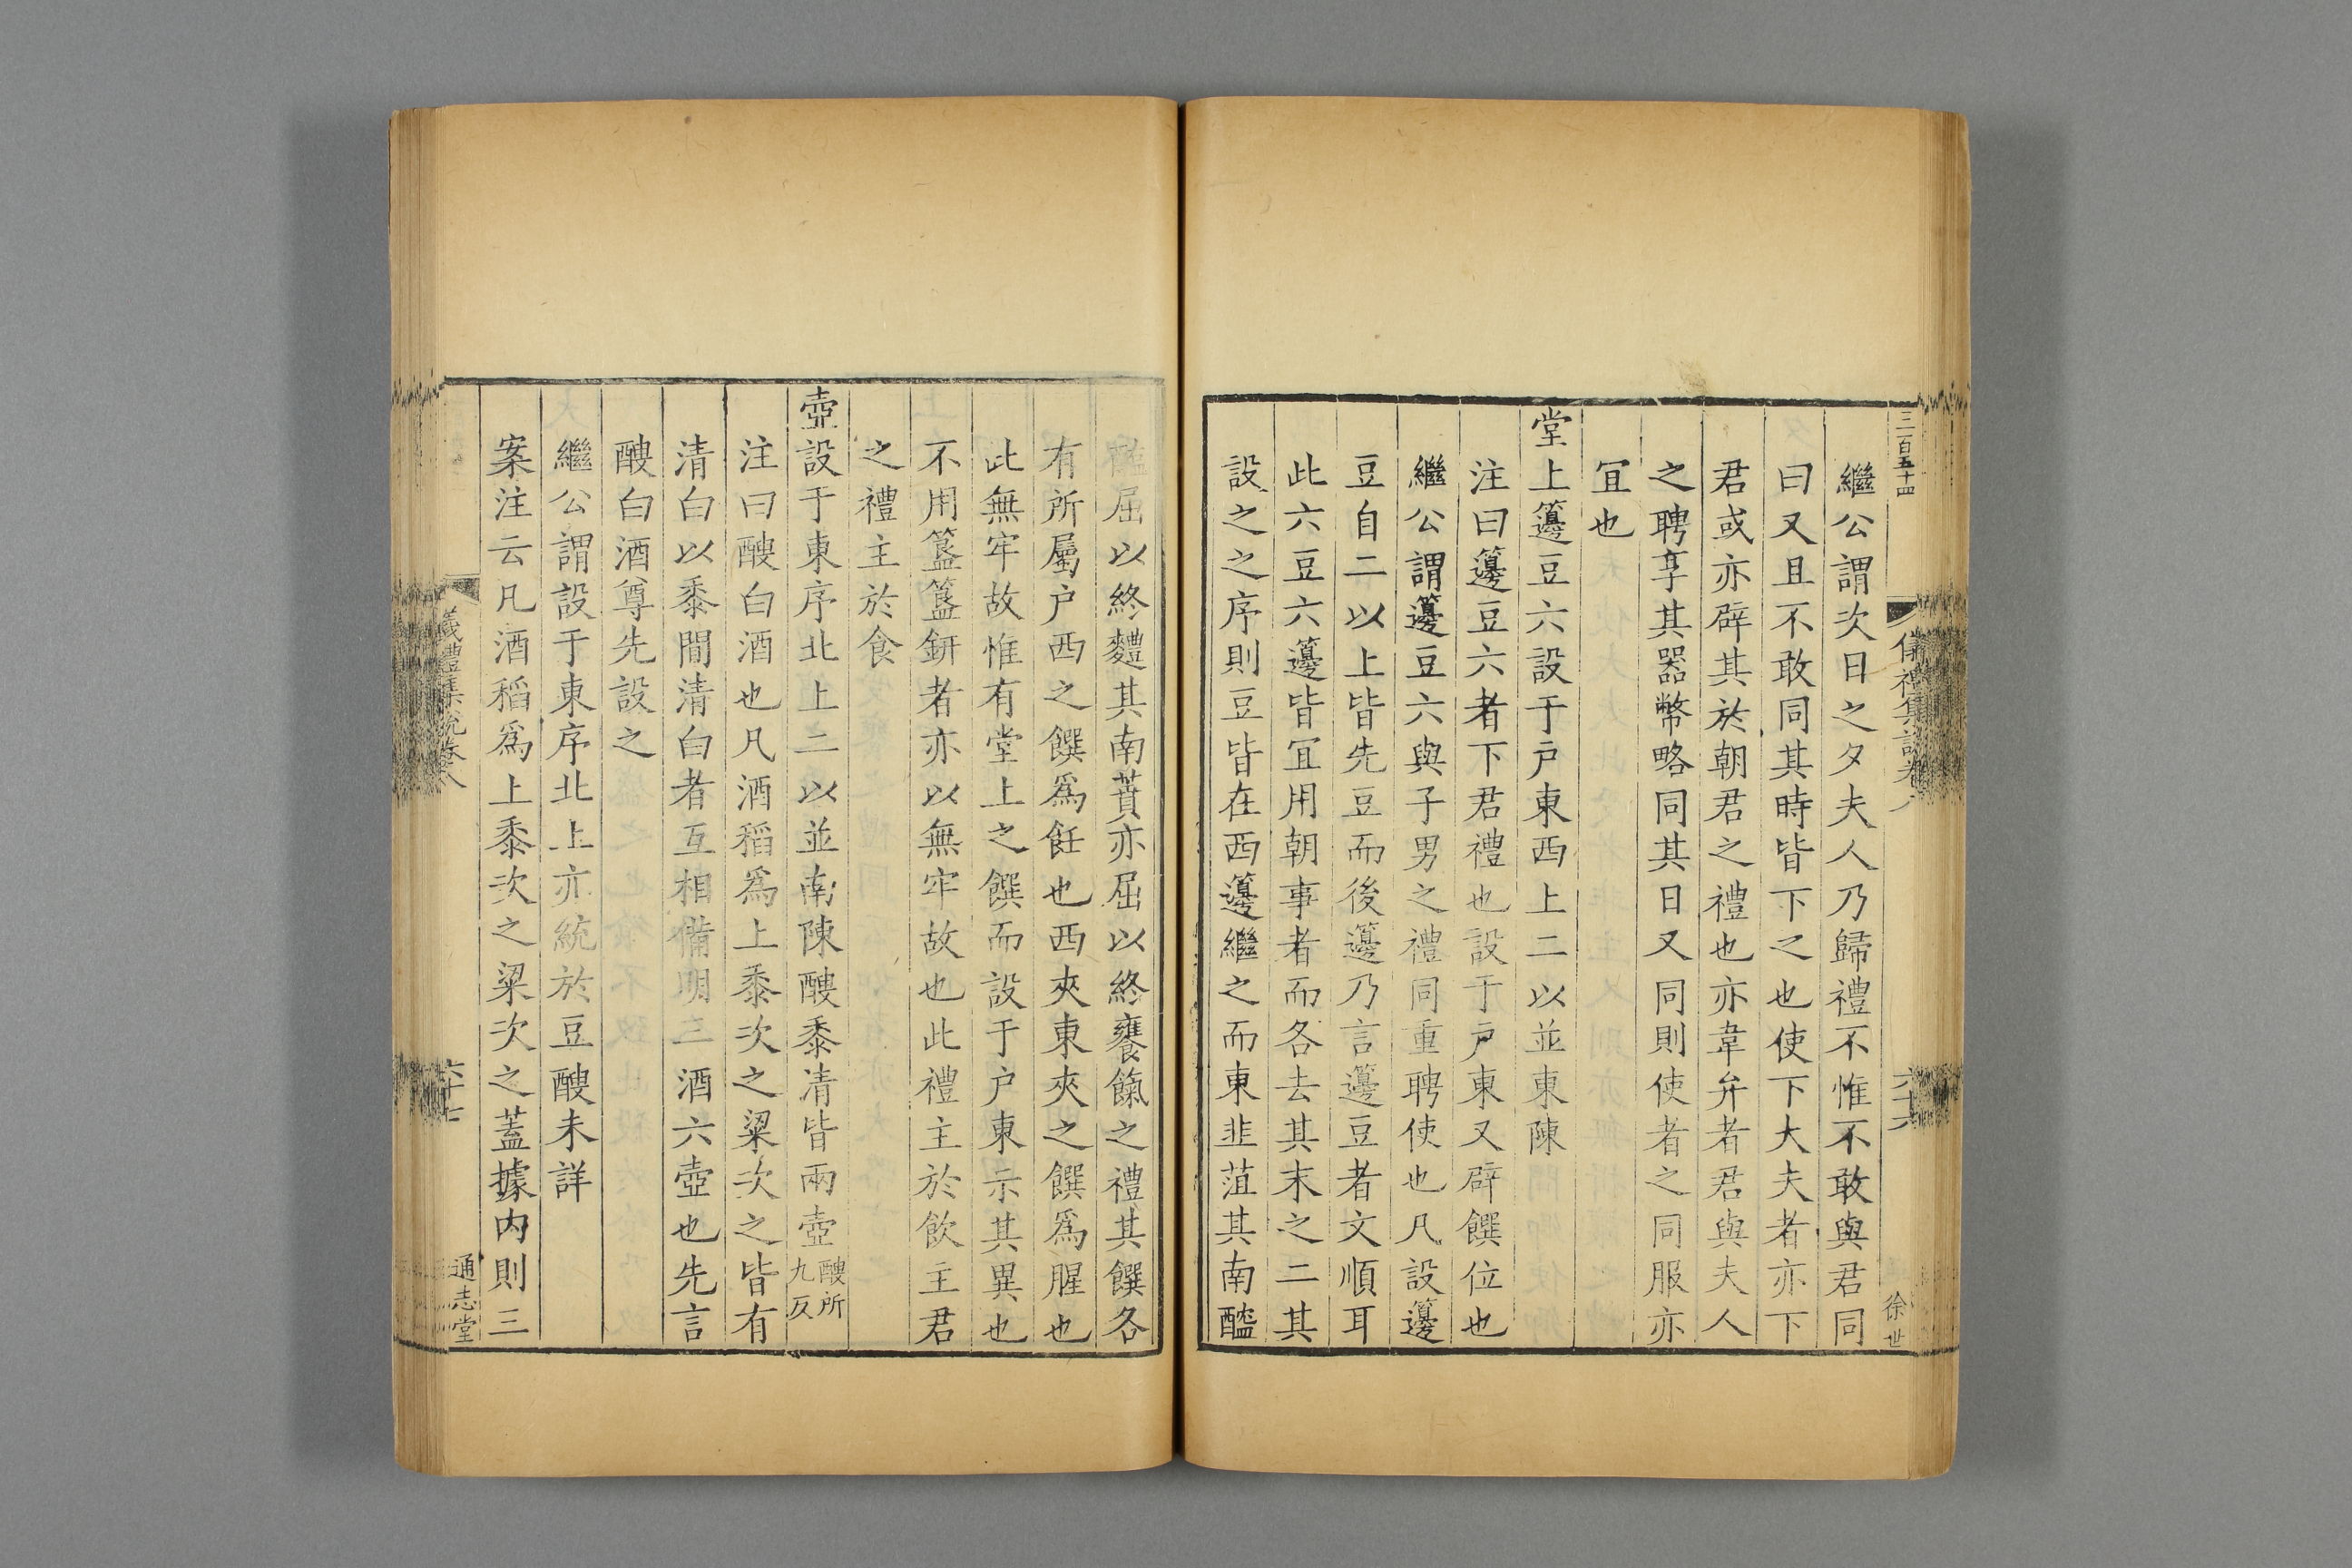 三百五十四
儀禮集說卷八
六十六
徐世
繼公謂次日之夕夫人乃歸禮不惟不敢與君同
曰又且不敢同其時皆下之也使下大夫者亦下
君或亦辟其於朝君之禮也亦韋弁者君與夫人
之聘享其器幣略同其日又同則使者之同服亦
宜也
堂上籩豆六設于戶東西上二以並東陳
注曰籩豆六者下君禮也設于戶東又辟饌位也
繼公謂籩豆六與子男之禮同重聘使也凡設籩
豆自二以上皆先豆而後籩乃言籩豆者文順耳
此六豆六籩皆宜用朝事者而各去其末之二其
設之之序則豆皆在西籩繼之而東韭菹其南醓
醢屈以終麷其南蕡亦屈以終饔餼之禮其饌各
有所屬户西之饌爲飪也西夾東夾之饌爲腥也
此無牢故惟有堂上之饌而設于户東示其異也
不用簠簋鉶者亦以無牢故也此禮主於飲主君
之禮主於食
壺設于東序北上二以並南陳醙黍清皆兩壺醙所九反
注曰醙白酒也凡酒稻爲上黍次之粱次之皆有
清白以黍間清白者互相備明三酒六壺也先言
醙白酒尊先設之
繼公謂設于東序北上亦統於豆醙未詳
案注云凡酒稻爲上黍次之粱次之蓋據内則三
儀禮集說卷八
六十七
通志堂